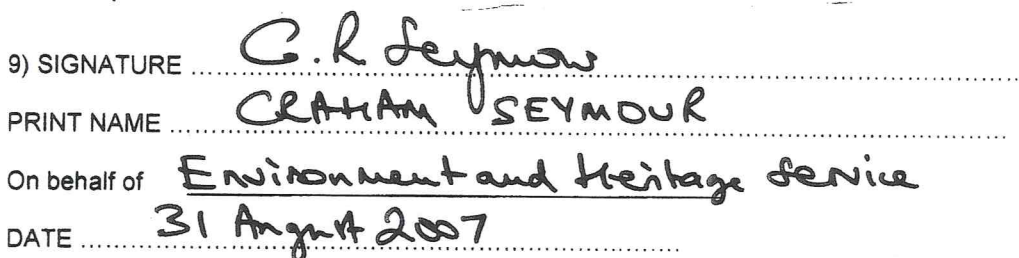 9) SIGNATURE ........ G.R Seymour
PRINT NAME ........ GRAHAM SEYMOUR
On behalf of Environment and Heritage Service
DATE ........ 31 August 2007